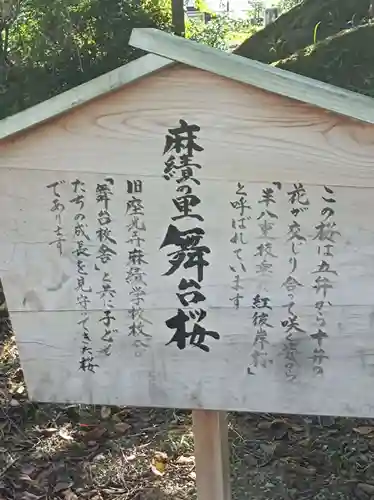 この桜は五弁から十弁の
花が交じり合って咲く
「半八重枝垂紅彼岸桜」
と呼ばれています
麻績の里舞台桜
旧座光寺麻績学校校舎
「舞台校舎」と共に子ども
たちの成長を見守ってきた桜
であります